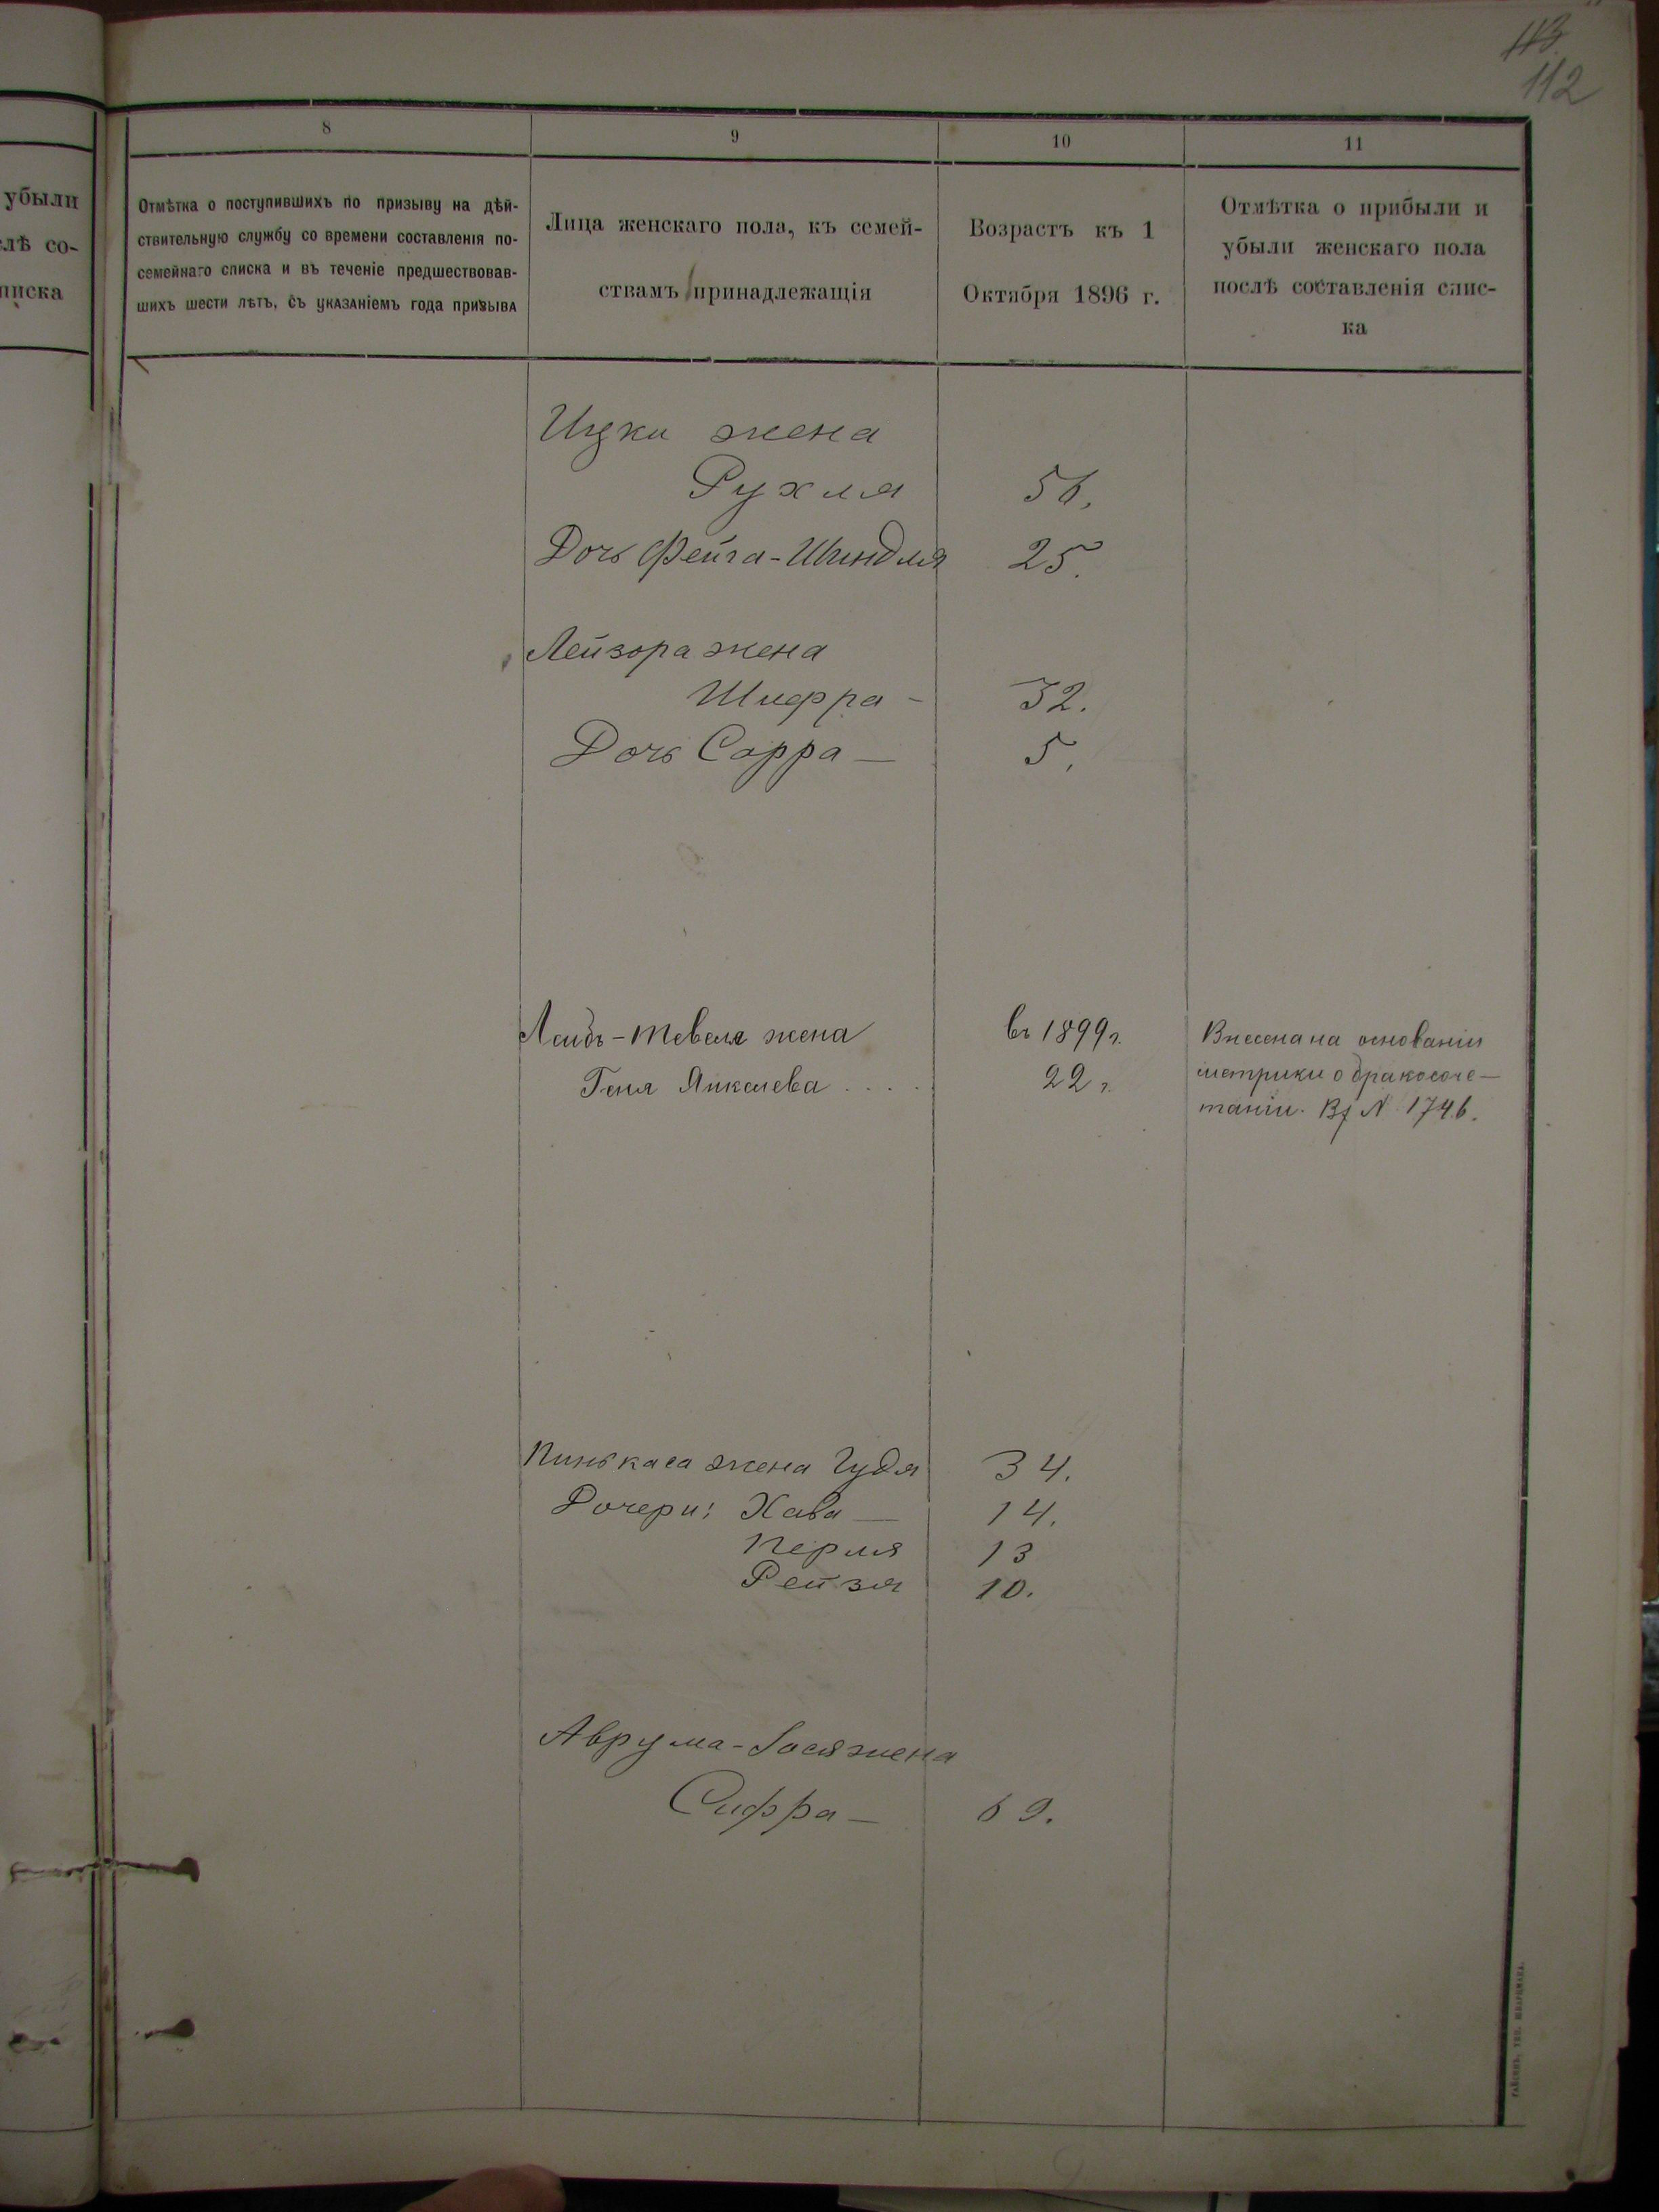 113
112
8
9
10
11
убыли
слѣ со-
писка
Отмѣтка о поступившихъ по призыву на дѣй-
ствительную службу со времени составленія по-
семейнаго списка и въ теченіе предшествовав-
шихъ шести лѣтъ, съ указаніемъ года призыва
Лица женскаго пола, къ семей-
ствамъ принадлежащія
Возрастъ къ 1
Октября 1896 г.
Отмѣтка о прибыли и
убыли женскаго пола
послѣ составленія спис-
ка
Ицки жена
Рухля 56.
Дочь Фейга-Шиндля 25.
Лейзора жена
Шифра - 32.
Дочь Сарра — 5.
Тевеля жена въ 1899 г. Внесена на основаніи
Геня Янкелева .... 22 г. метрики о бракосоче-
таніи. Вх № 1746.
Пинькаса жена Гудя 34.
Дочери: Хава — 14.
Перля 13
Рейзя 10.
Аврума-Іося жена
Сифра — 69.